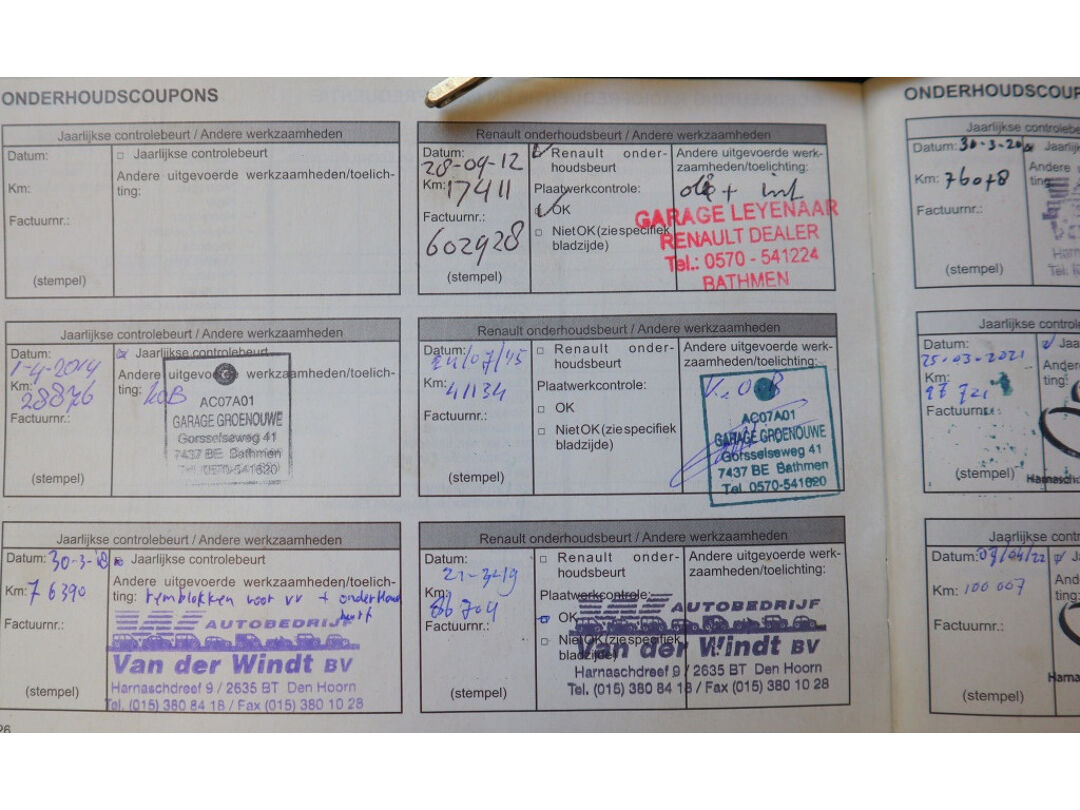 ONDERHOUDSCOUPONS
Jaarlijkse controlebeurt / Andere werkzaamheden
Datum:
Jaarlijkse controlebeurt
Andere uitgevoerde werkzaamheden/toelich-
ting:
Km:
Factuurnr.:
(stempel)
Renault onderhoudsbeurt / Andere werkzaamheden
Datum:
28-09-12
Km: 17411
Factuurnr.:
602928
(stempel)
Renault onder-
houdsbeurt
Plaatwerkcontrole:
OK
Niet OK (zie specifiek
bladzijde)
Andere uitgevoerde werk-
zaamheden/toelichting:
GARAGE LEYENAAR
RENAULT DEALER
Tel.: 0570 - 541224
BATHMEN
Jaarlijkse controlebeurt / Andere werkzaamheden
Datum:
1-4-2014
Km:
28876
Factuurnr.:
(stempel)
Jaarlijkse controlebeurt
Andere uitgevoerde werkzaamheden/toelich-
ting:
AC07A01
GARAGE GROENOUWE
Gorsselseweg 41
7437 BE Bathmen
Tel. 0570-541620
Renault onderhoudsbeurt / Andere werkzaamheden
Datum:
/07/15
Km: 41134
Factuurnr.:
(stempel)
Renault onder-
houdsbeurt
Plaatwerkcontrole:
OK
Niet OK (zie specifiek
bladzijde)
Andere uitgevoerde werk-
zaamheden/toelichting:
AC07A01
GARAGE GROENOUWE
Gorsselseweg 41
7437 BE Bathmen
Tel. 0570-541620
Jaarlijkse controlebeurt / Andere werkzaamheden
Datum: 30-3-18
Km: 76390
Factuurnr.:
(stempel)
Jaarlijkse controlebeurt
Andere uitgevoerde werkzaamheden/toelich-
ting: remblokken voor vv + onderhoud
beurt
AUTOBEDRIJF
Van der Windt BV
Harnaschdreef 9 / 2635 BT Den Hoorn
Tel. (015) 380 84 18 / Fax (015) 380 10 28
Renault onderhoudsbeurt / Andere werkzaamheden
Datum:
21-3-19
Km:
86704
Factuurnr.:
(stempel)
Renault onder-
houdsbeurt
Plaatwerkcontrole:
OK
Niet OK (zie specifiek
bladzijde)
Andere uitgevoerde werk-
zaamheden/toelichting:
AUTOBEDRIJF
Van der Windt BV
Harnaschdreef 9 / 2635 BT Den Hoorn
Tel. (015) 380 84 18 / Fax (015) 380 10 28
26
ONDERHOUDSCOUP
Jaarlijkse controlebe
Datum: 30-3-20
Jaarlij
Andere
ting:
Km: 76078
Factuurnr.:
(stempel)
Harn
Tel. (
Jaarlijkse contro
Datum:
25-03-2021
Km:
97721
Factuurnr.:
(stempel)
Jaa
Ander
ting:
Harnasch
Jaarlijkse con
Datum: 07/04/22
Km: 100 007
Factuurnr.:
(stempel)
Ja
Ande
ting:
Harna